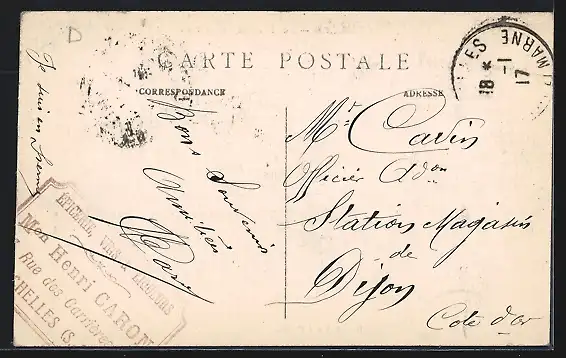 D
CARTE POSTALE
CORRESPONDANCE
ADRESSE
LLES * MARNE
18 * -1
17
Je suis en
Bons Souvenirs
Amitiés
EPICERIE, VINS & LIQUEURS
Mon Henri CARON
Rue des Carrières
CHELLES (S.
Mr. Cavin
Officier Adon
Station Magasin
de
Dijon
Cote d'or